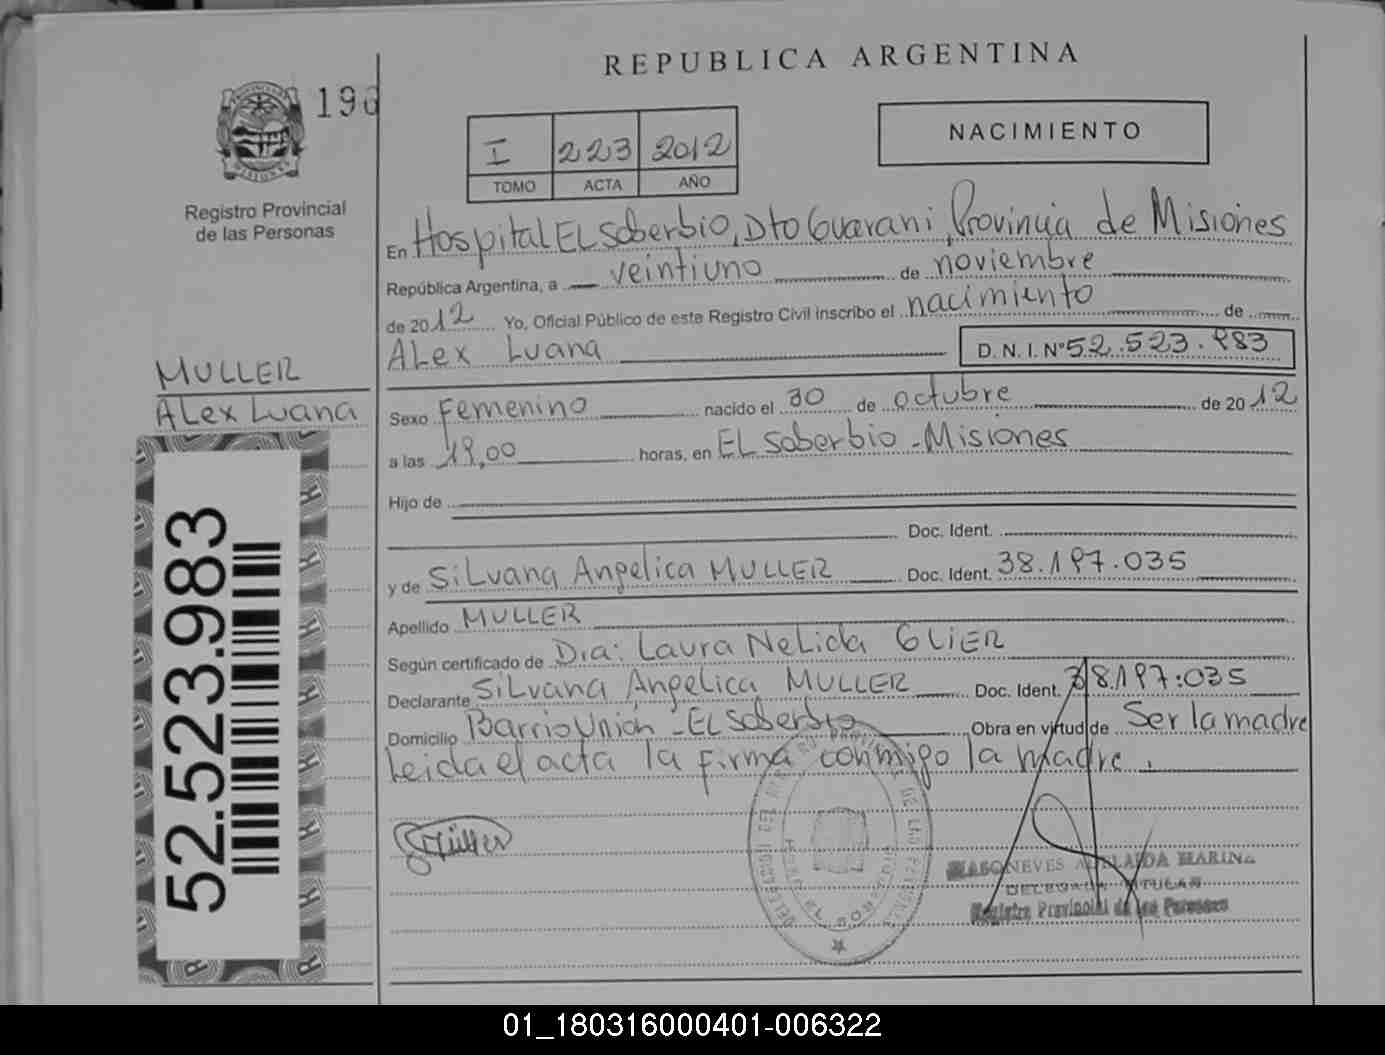 REPUBLICA ARGENTINA
196
I 223 2012
TOMO ACTA AÑO
NACIMIENTO
Registro Provincial
de las Personas
En Hospital EL Soberbio, Dto Guarani, Provincia de Misiones
República Argentina, a veintiuno de noviembre
de 2012 Yo, Oficial Público de este Registro Civil inscribo el nacimiento de
ALex Luana D.N.I.Nº 52.523.983
MULLER
ALex Luana
Sexo Femenino nacido el 30 de octubre de 2012
a las 19,00 horas, en EL Soberbio - Misiones
Hijo de
Doc. Ident.
y de SiLvana Angelica MULLER Doc. Ident. 38.197.035
Apellido MULLER
Según certificado de Dra: Laura NeLida GLIER
Declarante SiLvana Angelica MULLER Doc. Ident. 38.197.035
Domicilio Barrio Union - EL Soberbio Obra en virtud de Ser la madre
Leida el acta la firma conmigo la madre.
52.523.983
Müller
MARINA
DELEGADA TITULAR
Registro Provincial de las Personas
01_180316000401-006322